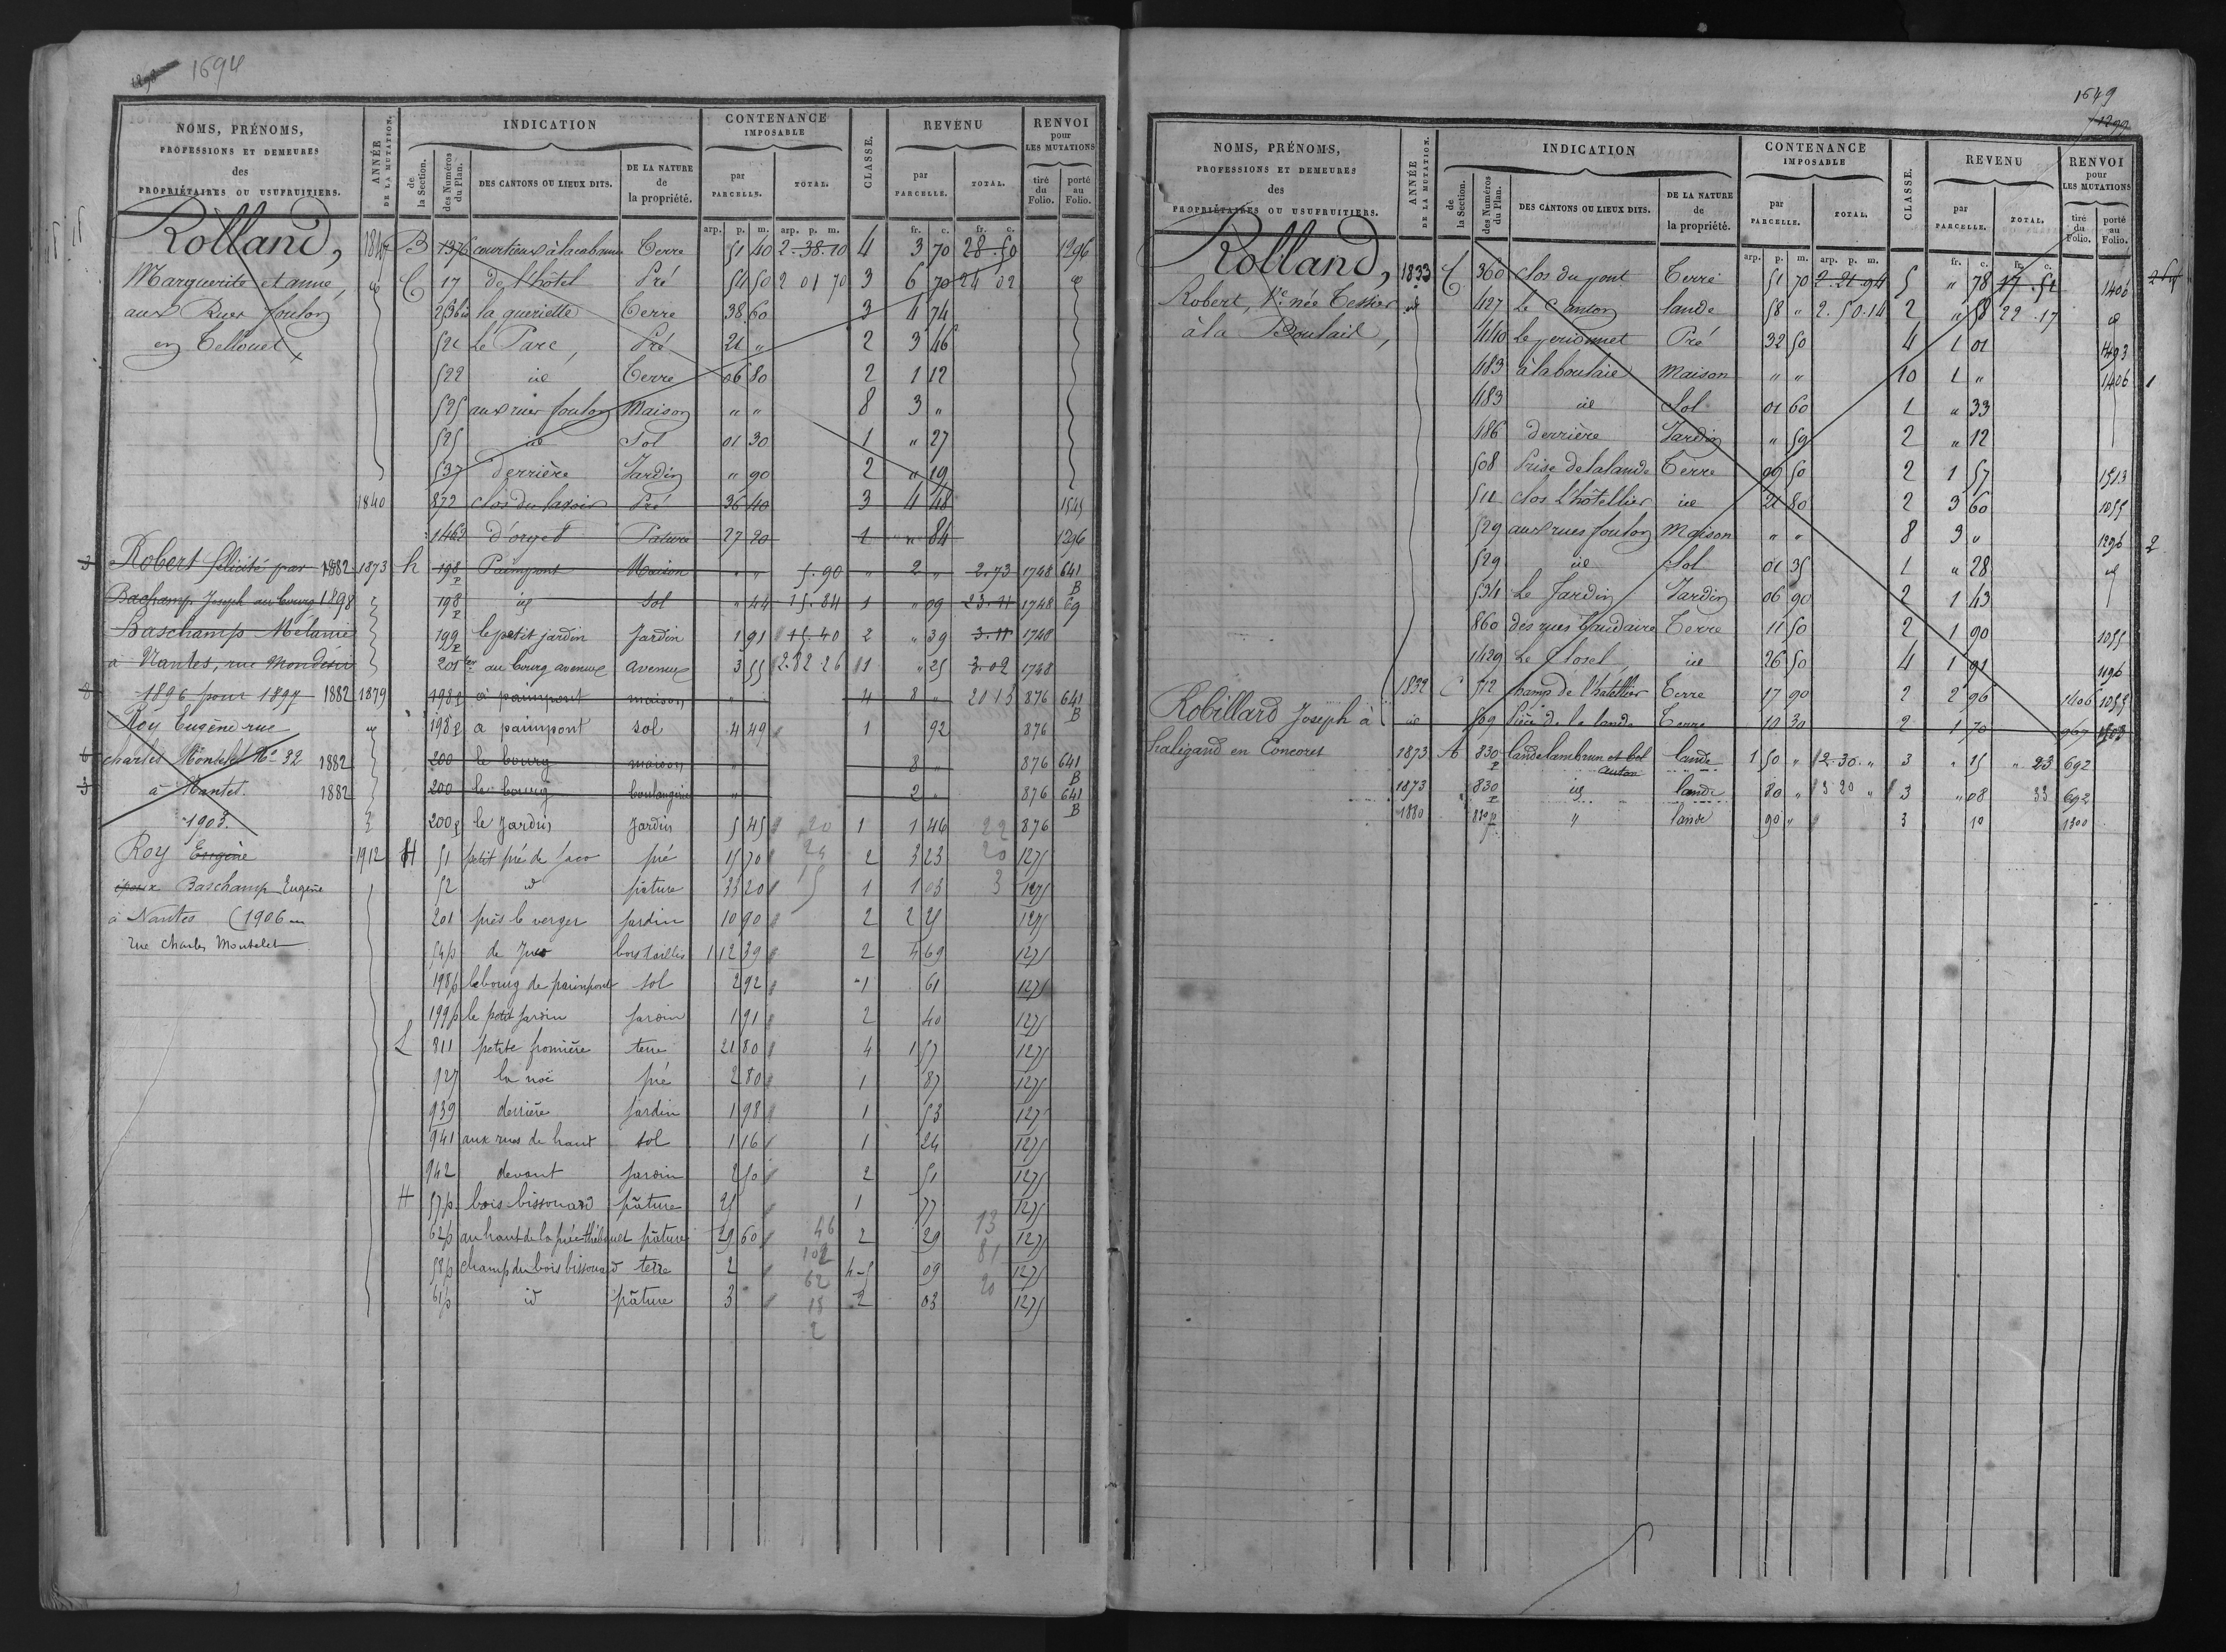 1298 1694
NOMS, PRÉNOMS, PROFESSIONS ET DEMEURES des PROPRIÉTAIRES OU USUFRUITIERS. ANNÉE DE LA MUTATION. INDICATION de la Section. des Numéros du Plan. DES CANTONS OU LIEUX DITS. DE LA NATURE de la propriété. CONTENANCE IMPOSABLE par PARCELLE. TOTAL. CLASSE. REVENU par PARCELLE. TOTAL. RENVOI pour LES MUTATIONS tiré du Folio. porté au Folio.
arp. p. m. arp. p. m. fr. c. fr. c.
Rolland, 1847 B 1376 courtieux à la cabane Terre 51 40 2-38-10 4 3 70 28-50 1296
Marguerite et anne, id C 17 de l'hôtel Pré 54 50 2 01 70 3 6 70 24 02 id
aux Rues foulon 253bis la queriette Terre 38 60 3 4 74
en Tellouet 521 Le Parc, Pré 21 " 2 3 46
522 id Terre 06 80 2 1 12
525 aux rues foulon Maison " " 8 3 "
525 id Sol 01 30 1 " 27
537 derrière Jardin " 90 2 " 19
1840 872 clos du lavoir Pré 36 40 3 4 48 1545
1462 d'orget Pature 27 20 1 " 84 1296
3 Robert félicité par 1882 1873 h 198 p Paimpont Maison " " 5.90 " 2 " 2.73 1748 641 B
Baschamp Joseph au bourg 1898 198 p id Sol " 44 15.84 1 " 09 23.11 1748 69
Baschamp Mélanie 199 p le petit jardin Jardin 1 91 15.40 2 " 39 3.11 1748
à Nantes, rue Mondésir 201 ter au bourg avenue avenue 3 55 2.82.26 1 " 25 3.02 1748
8 1896 pour 1897 1882 1879 198 p à paimpont maison " 4 8 " 20 15 876 641 B
Roy Eugène rue id 198 p a paimpont sol 4 49 1 92 876
6 charles Monselet No 32 1882 200 le bourg maison " 8 " 876 641 B
5 à Nantes. 1882 200 le bourg boulangerie " 2 " 876 641 B
1903. 200 p le Jardin Jardin 5 45 20 1 1 46 22 876
Roy Eugène 1912 H 51 petit pré de Juco pré 15 70 24 2 3 23 20 1275
époux Baschamp Eugène 52 id pâture 33 20 15 1 1 03 3 1275
à Nantes (1906 201 près le verger jardin 10 90 2 2 25 1275
rue Charles Monselet
54p de Juco bois taillis 1 12 39 2 4 69 1275
198p le bourg de paimpont sol 2 92 1 61 1275
199p le petit Jardin Jardin 1 91 2 40 1275
L 811 petite fromière terre 21 80 4 1 57 1275
927 la noë pré 2 80 1 87 1275
939 derrière Jardin 1 98 1 53 1275
941 aux rues de haut sol 1 16 1 24 1275
942 devant Jardin 2 50 2 51 1275
H 57p bois bissouard pâture 25 1 77 1275
62p au haut de la prée thébouet pâture 29 60 46 2 29 13 1275
58p champ du bois bissouard terre 2 102 4-5 09 81 1275
61p id pâture 3 62 2 03 20 1275
18
2
1649
1299
NOMS, PRÉNOMS, PROFESSIONS ET DEMEURES des PROPRIÉTAIRES OU USUFRUITIERS. ANNÉE DE LA MUTATION. INDICATION de la Section. des Numéros du Plan. DES CANTONS OU LIEUX DITS. DE LA NATURE de la propriété. CONTENANCE IMPOSABLE par PARCELLE. TOTAL. CLASSE. REVENU par PARCELLE. TOTAL. RENVOI pour LES MUTATIONS tiré du Folio. porté au Folio.
arp. p. m. arp. p. m. fr. c. fr. c.
Rolland, 1833 C 360 clos du pont Terre 51 70 2-21-94 5 " 78 17-51 1406
Robert, Ve née Tessier id 427 Le Canton lande 58 " 2.50.14 2 " 58 22-17 id
à la Boulaie, 440 le perdonnet Pré 32 50 4 1 01 1493
483 à la boulaie Maison " " 10 1 " 1406 1
483 id Sol 01 60 1 " 33
486 derrière Jardin " 59 2 " 12
508 Prise de la lande Terre 09 50 2 1 57 1513
511 clos l'hôtellier id 21 80 2 3 60 1055
529 aux rues foulon Maison " " 8 3 " 1296 2
529 id Sol 01 35 1 " 28 id
534 Le Jardin Jardin 06 90 2 1 43
860 des rues Gaudaire Terre 11 50 2 1 90 1055
1429 Le Closel id 26 50 4 1 91 1296
Robillard Joseph à 1832 C 512 champ de l'hatellier Terre 17 90 2 2 96 1406 1055
id 509 Pièce de la lande Terre 10 30 2 1 70 967 1503
haligand en Concoret 1873 A 830 p lande lambrun et bel auton lande 1 50 " 2-30 " 3 " 15 " 23 692
1873 830 p id lande 80 " 3-20 " 3 " 08 33 692
1880 830 p " lande 90 " 3 10 1300